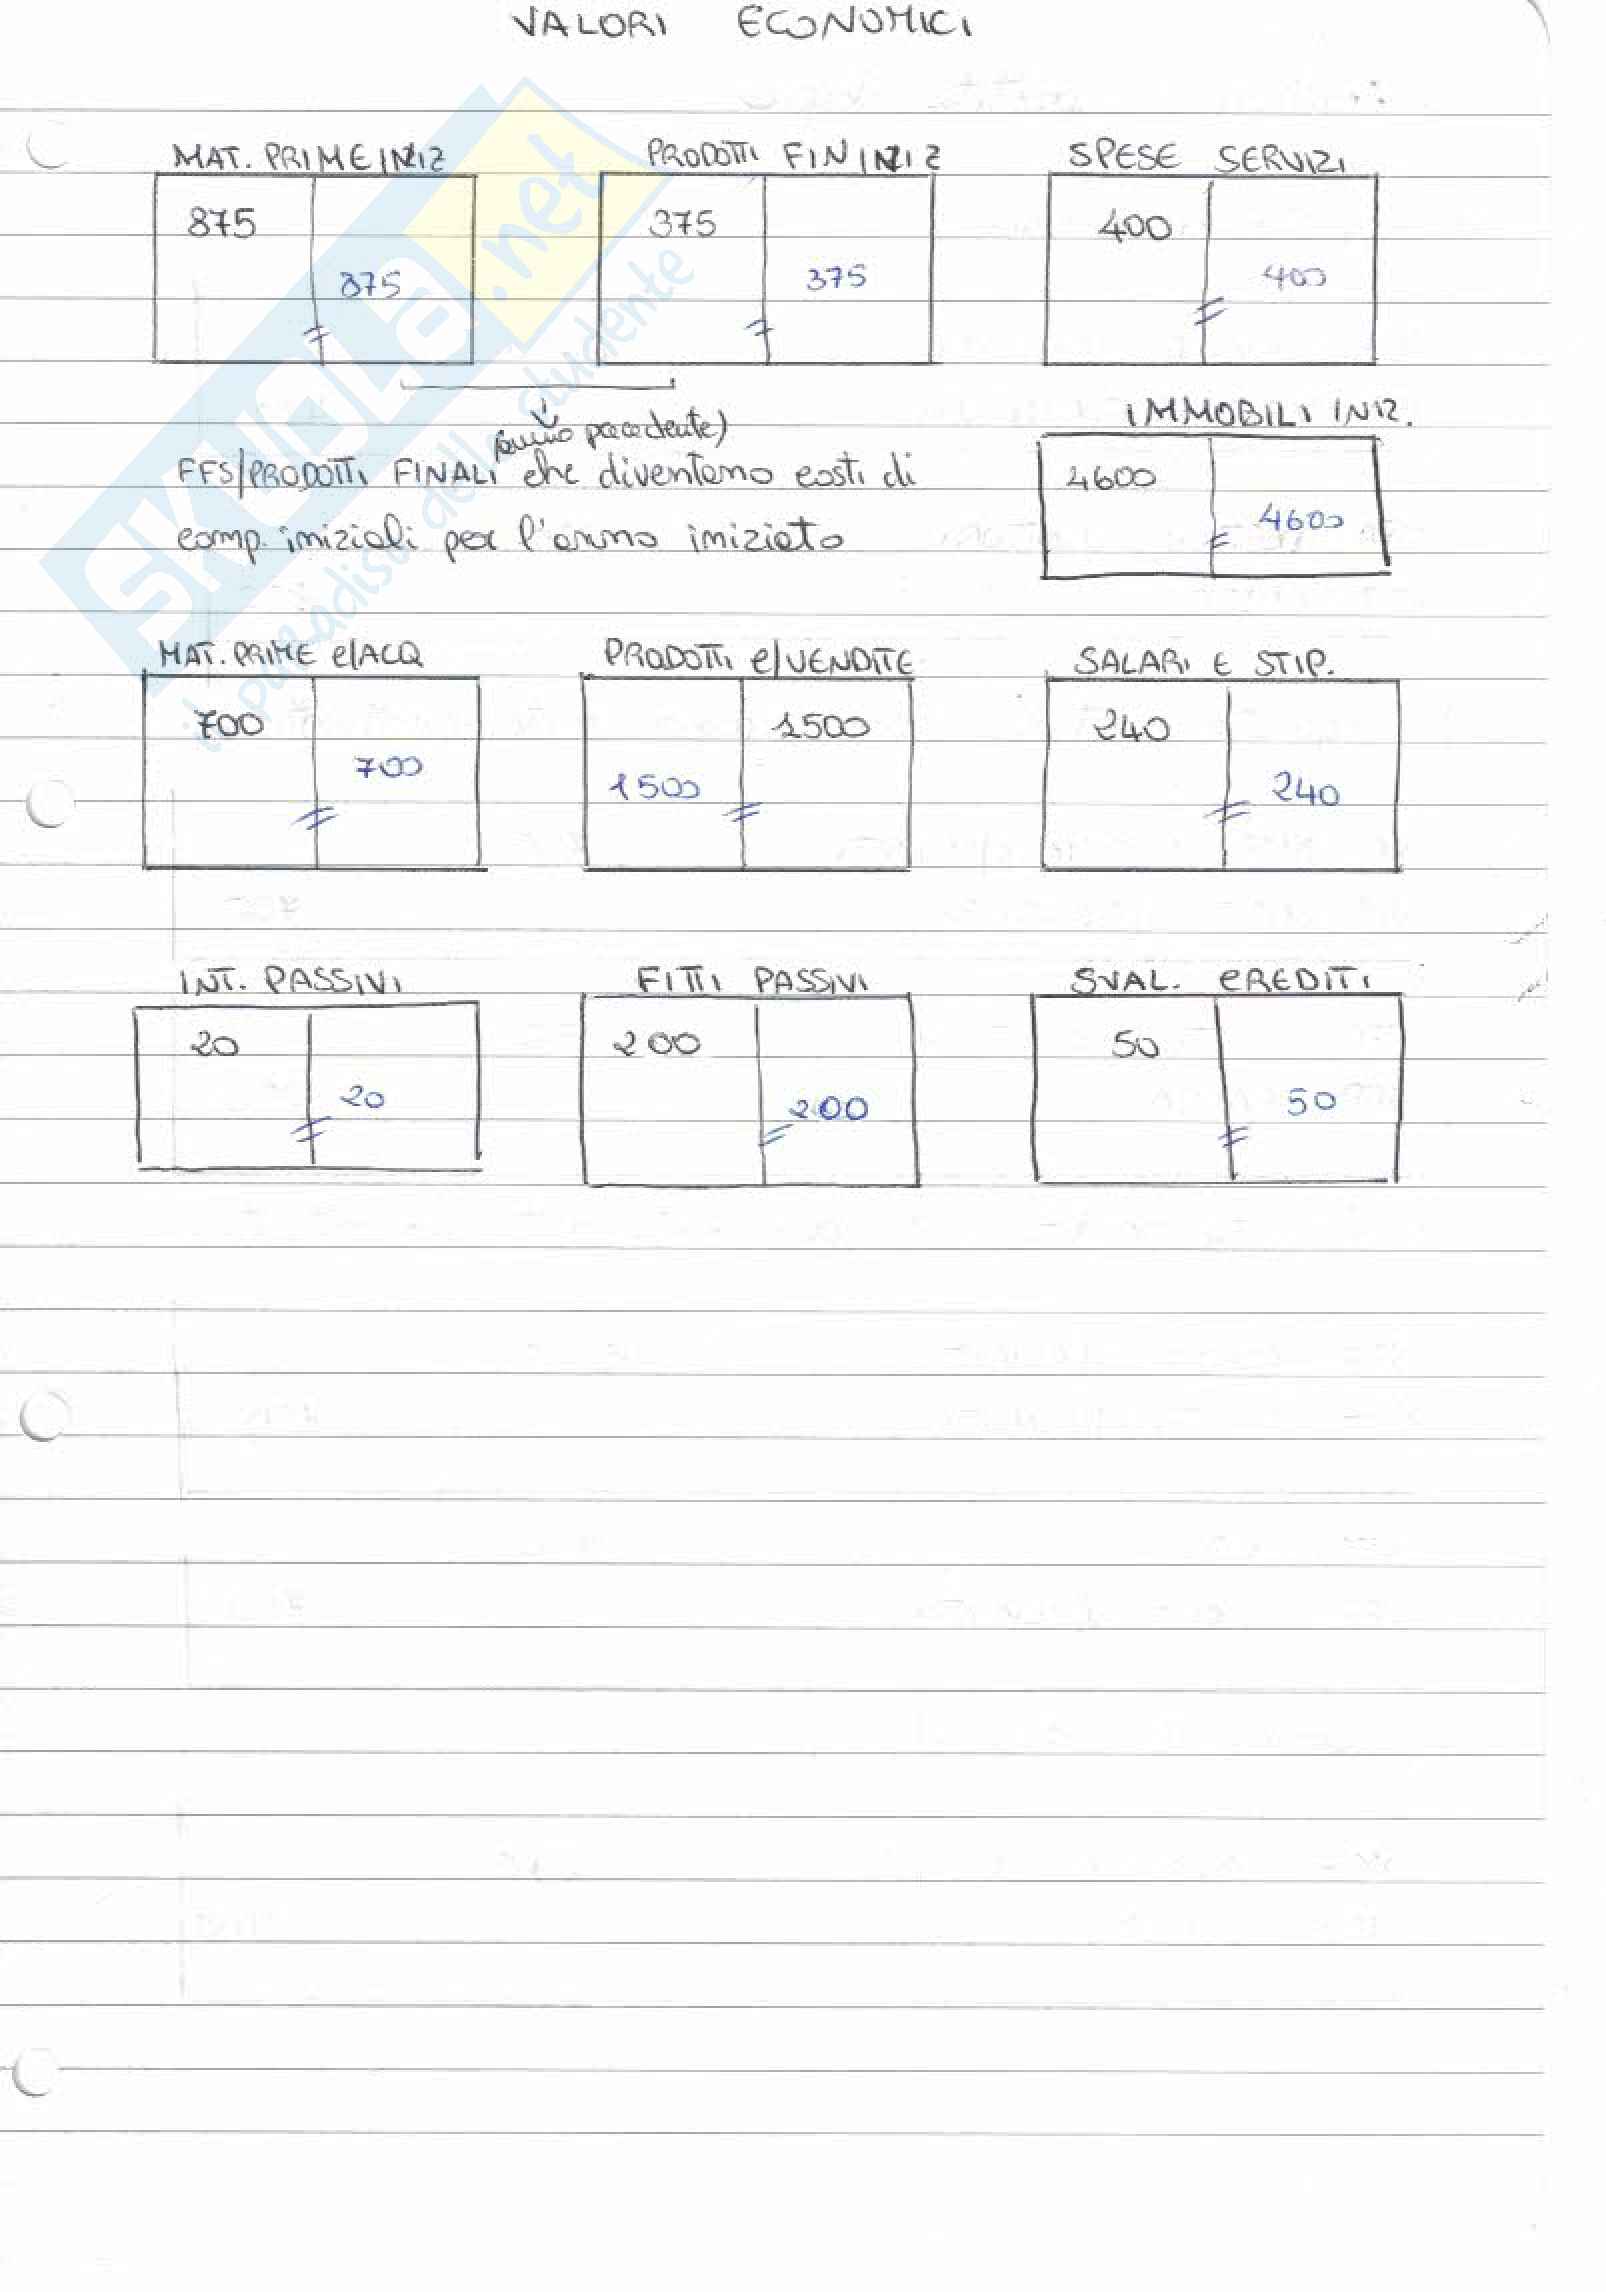 VALORI ECONOMICI
MAT. PRIME INIZ PRODOTTI FIN INIZ SPESE SERVIZI
875 375 400
875 375 400
(anno precedente) IMMOBILI INIZ.
FFS/PRODOTTI FINALI che diventano costi di 4600
comp. iniziali per l'anno iniziato 4600
MAT. PRIME C/ACQ PRODOTTI C/VENDITE SALARI E STIP.
700 1500 240
700 1500 240
INT. PASSIVI FITTI PASSIVI SVAL. CREDITI
20 200 50
20 200 50
SKUOLA.net
il paradiso dello studente